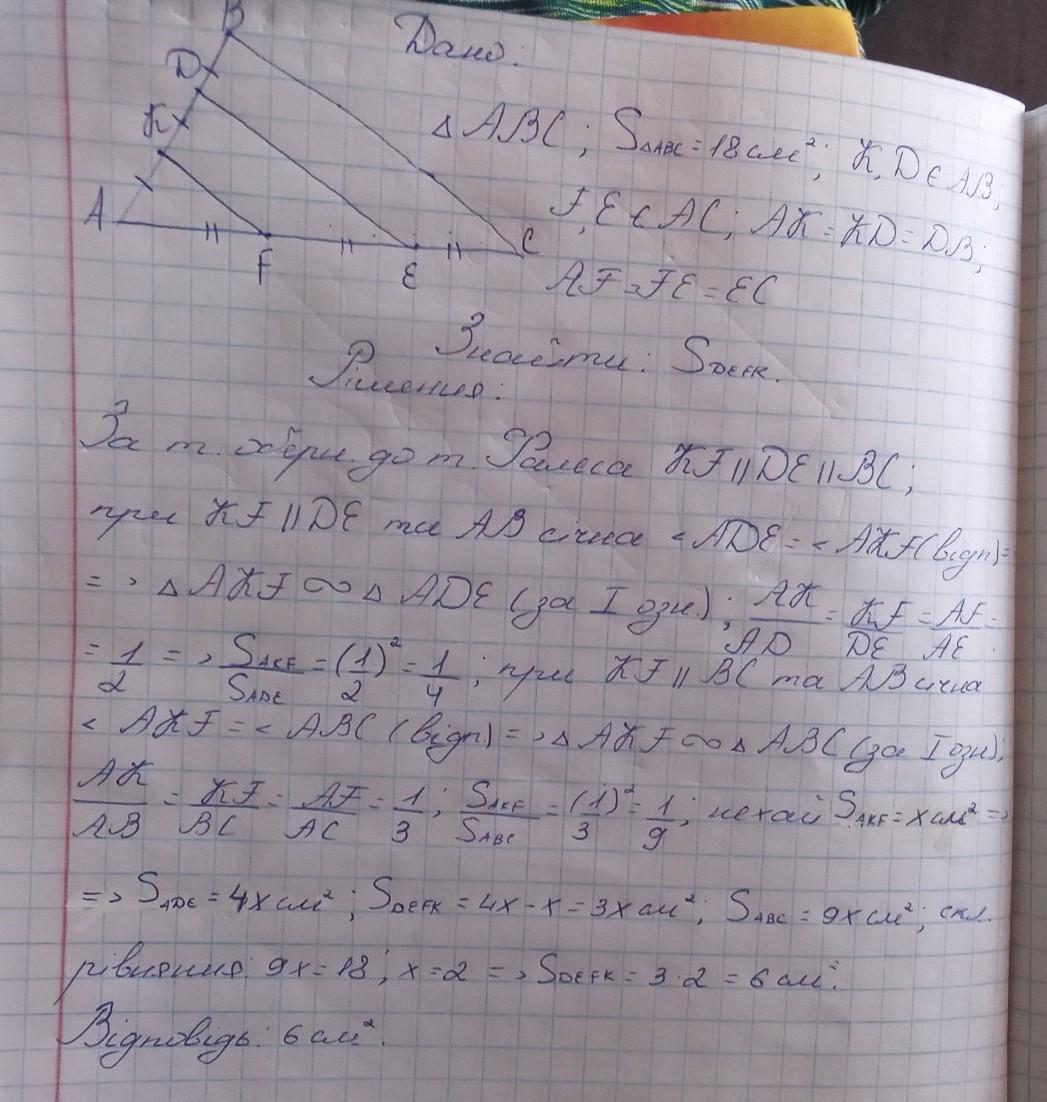 B
Дано:
D
K
△ABC; S△ABC = 18 см²; K, D ∈ AB;
A
F, E ∈ AC; AK = KD = DB;
F
E
C
AF = FE = EC
Знайти: SDEFK.
Рішення:
За т. оберн. до т. Фалеса KF || DE || BC;
при KF || DE та AB січна ∠ADE = ∠AKF (відп) =
=> △AKF ∞ △ADE (за I озн.); AK/AD = KF/DE = AF/AE =
= 1/2 => SAKF/SADE = (1/2)² = 1/4; при KF || BC та AB січна
∠AKF = ∠ABC (відп) => △AKF ∞ △ABC (за I озн);
AK/AB = KF/BC = AF/AC = 1/3; SAKF/SABC = (1/3)² = 1/9; нехай SAKF = x см² =>
=> SADE = 4x см²; SDEFK = 4x - x = 3x см²; SABC = 9x см²; скл.
рівняння: 9x = 18; x = 2 => SDEFK = 3·2 = 6 см².
Відповідь: 6 см².